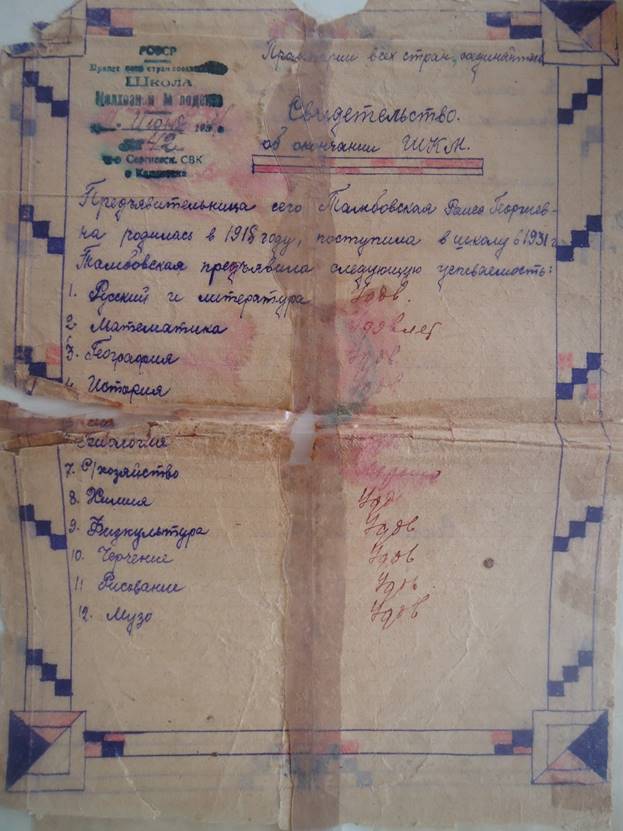 РСФСР
Школа
Колхозной Молодежи
Июня 193
№ 42
Пролетарии всех стран, соединяйтесь
Свидетельство.
об окончании ШКМ.
Предъявительница сего Тамбовская Раиса Георгиев-
на родилась в 1915 году, поступила в школу в 1931 г.
Тамбовская предъявила следующую успеваемость:
1. Русский и литература Удов.
2. Математика удовлет
3. География Удов
4. История
Биология
7. С/хозяйство
8. Химия Удо
9. Физкультура Удов
10. Черчение Удов
11 Рисование Удов.
12. Музо Удов